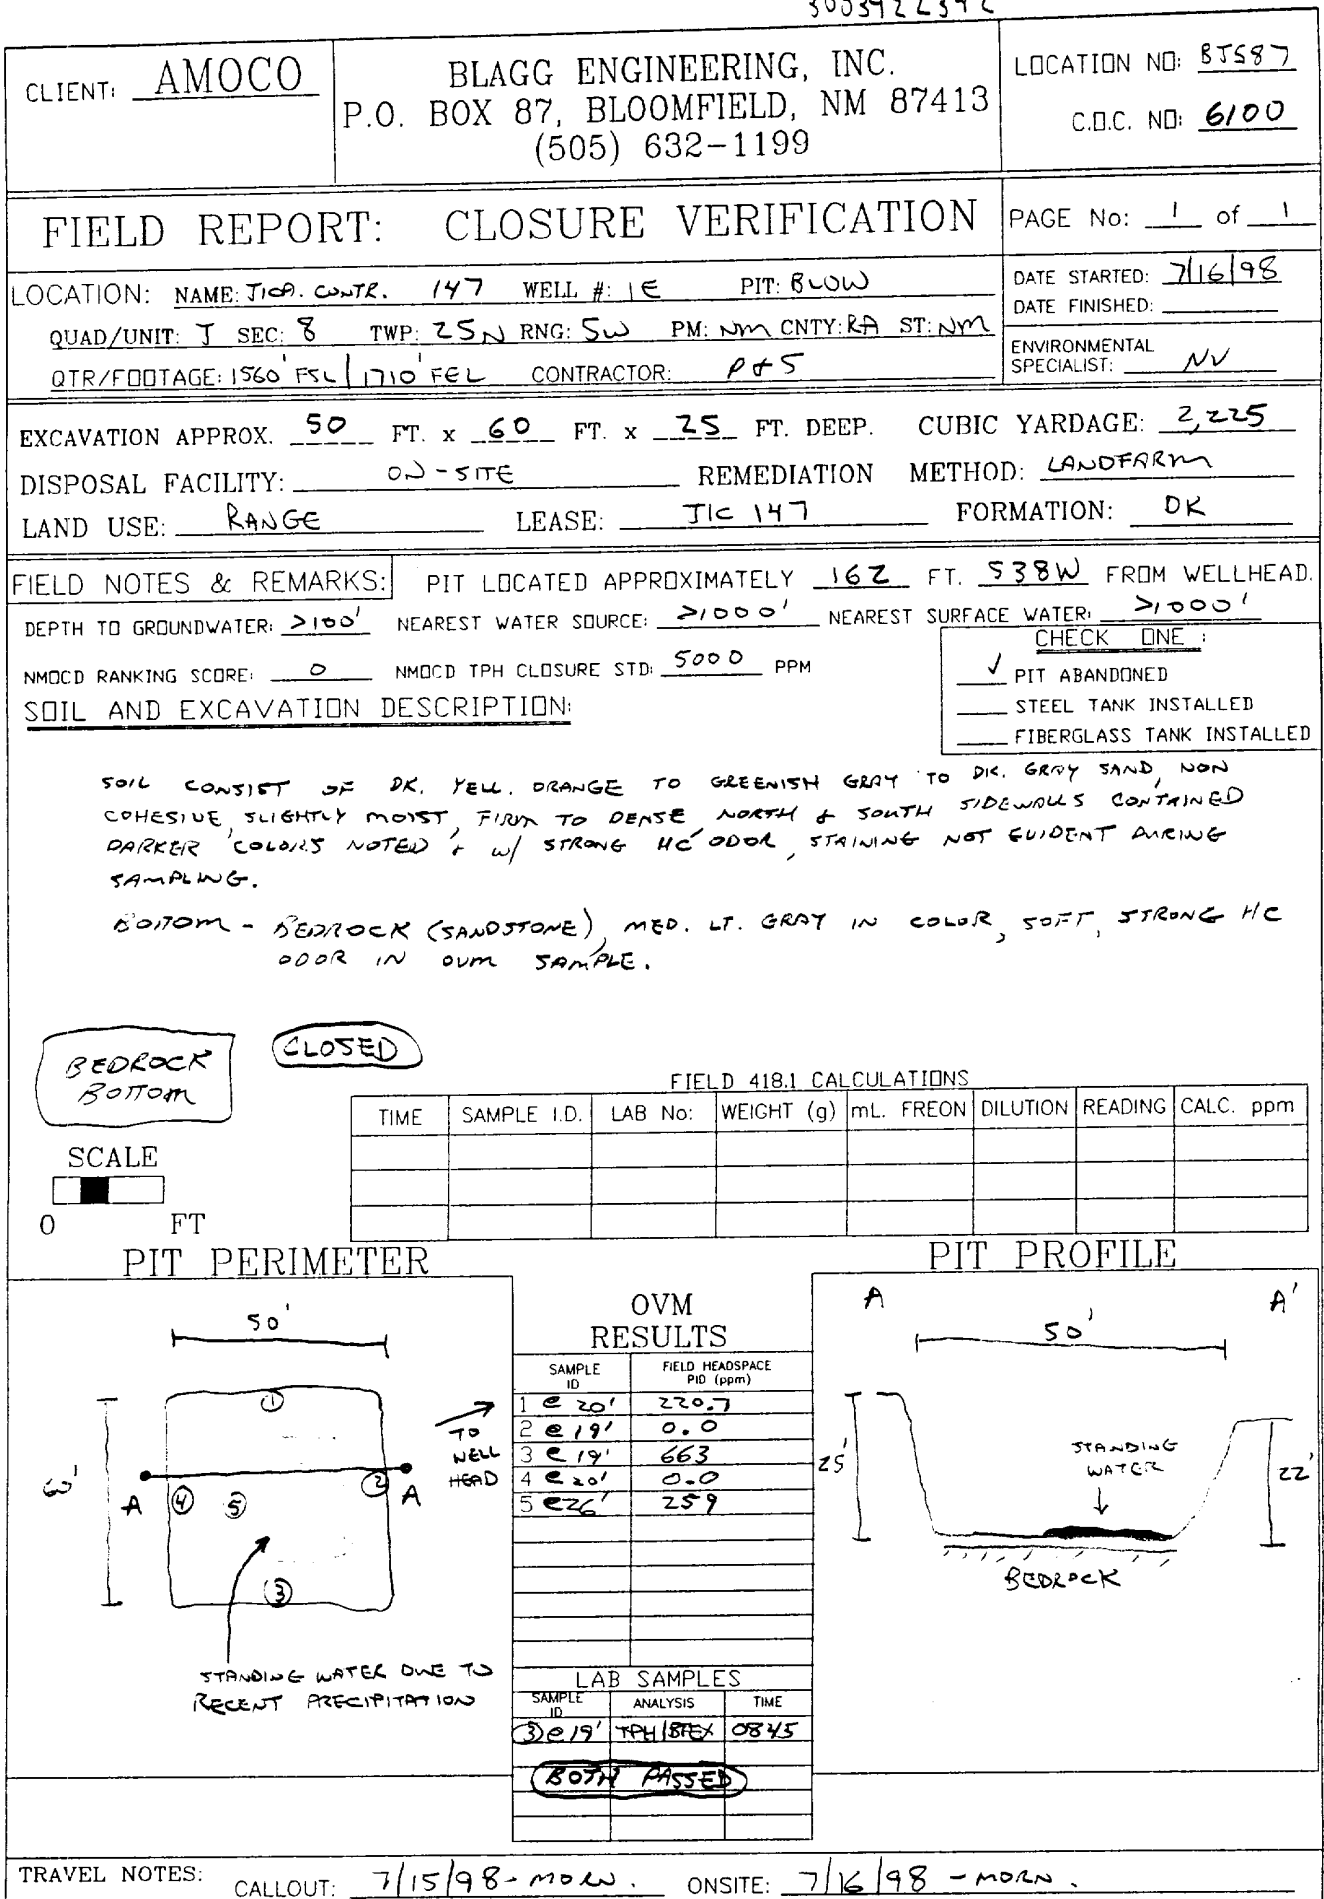 3003922392
CLIENT: AMOCO
BLAGG ENGINEERING, INC.
P.O. BOX 87, BLOOMFIELD, NM 87413
(505) 632-1199
LOCATION NO: BJ587
C.O.C. NO: 6100
FIELD REPORT: CLOSURE VERIFICATION
PAGE No: 1 of 1
LOCATION: NAME: JICA. CONTR. 147 WELL #: 1E PIT: BLOW
QUAD/UNIT: J SEC: 8 TWP: 25N RNG: 5W PM: NM CNTY: RA ST: NM
QTR/FOOTAGE: 1560' FSL / 1710' FEL CONTRACTOR: P & S
DATE STARTED: 7/16/98
DATE FINISHED:
ENVIRONMENTAL
SPECIALIST: NV
EXCAVATION APPROX. 50 FT. x 60 FT. x 25 FT. DEEP. CUBIC YARDAGE: 2,225
DISPOSAL FACILITY: ON-SITE REMEDIATION METHOD: LANDFARM
LAND USE: RANGE LEASE: JIC 147 FORMATION: DK
FIELD NOTES & REMARKS: PIT LOCATED APPROXIMATELY 162 FT. S38W FROM WELLHEAD.
DEPTH TO GROUNDWATER: >100' NEAREST WATER SOURCE: >1000' NEAREST SURFACE WATER: >1000'
NMOCD RANKING SCORE: 0 NMOCD TPH CLOSURE STD: 5000 PPM
CHECK ONE :
✓ PIT ABANDONED
STEEL TANK INSTALLED
FIBERGLASS TANK INSTALLED
SOIL AND EXCAVATION DESCRIPTION:
SOIL CONSIST OF DK. YELL. ORANGE TO GREENISH GRAY TO DK. GRAY SAND, NON
COHESIVE, SLIGHTLY MOIST, FIRM TO DENSE NORTH & SOUTH SIDEWALLS CONTAINED
DARKER COLORS NOTED & W/ STRONG HC ODOR, STAINING NOT EVIDENT DURING
SAMPLING.
BOTTOM - BEDROCK (SANDSTONE), MED. LT. GRAY IN COLOR, SOFT, STRONG HC
ODOR IN OVM SAMPLE.
BEDROCK
BOTTOM
CLOSED
SCALE
0 FT
FIELD 418.1 CALCULATIONS
TIME SAMPLE I.D. LAB No: WEIGHT (g) mL. FREON DILUTION READING CALC. ppm
PIT PERIMETER
50'
60'
①
②
③
④
⑤
A A
TO
WELL
HEAD
STANDING WATER DUE TO
RECENT PRECIPITATION
OVM
RESULTS
SAMPLE ID FIELD HEADSPACE PID (ppm)
1 @ 20' 220.7
2 @ 19' 0.0
3 @ 19' 663
4 @ 20' 0.0
5 @ 26' 259
LAB SAMPLES
SAMPLE ID ANALYSIS TIME
③@19' TPH/BTEX 0845
BOTH PASSED
PIT PROFILE
A A'
50'
25'
22'
STANDING
WATER
BEDROCK
TRAVEL NOTES: CALLOUT: 7/15/98 - MORN. ONSITE: 7/16/98 - MORN.